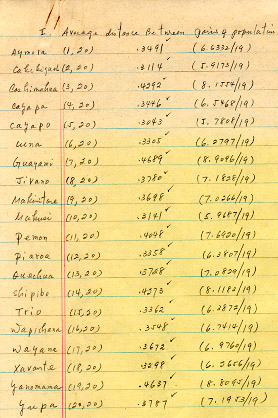 I. Average distance Between pairs of population
Aymora (1,20) .3491 ✓ (6.6332/19)
(2,20) .3114 ✓ (5.9173/19)
Cashinahua (3,20) .4292 ✓ (8.1554/19)
Cayapa (4,20) .3446 ✓ (6.5468/19)
Cayapo (5,20) .3043 ✓ (5.7808/19)
Cuna (6,20) .3305 ✓ (6.2797/19)
Guayami (7,20) .4689 ✓ (8.9096/19)
Jivaro (8,20) .3780 ✓ (7.1828/19)
Makiritare (9,20) .3698 ✓ (7.0266/19)
Makusi (10,20) .3141 ✓ (5.9687/19)
Pemon (11,20) .4048 ✓ (7.6920/19)
Piaroa (12,20) .3358 ✓ (6.3807/19)
Quechua (13,20) .3728 ✓ (7.0829/19)
Shipibo (14,20) .4273 ✓ (8.1182/19)
Trio (15,20) .3362 ✓ (6.3872/19)
Wapishana (16,20) .3548 ✓ (6.7414/19)
Wayana (17,20) .3672 ✓ (6.9760/19)
Xavante (18,20) .3298 ✓ (6.2656/19)
Yanomama (19,20) .4637 ✓ (8.8095/19)
Yupa (20,20) .3787 ✓ (7.1953/19)